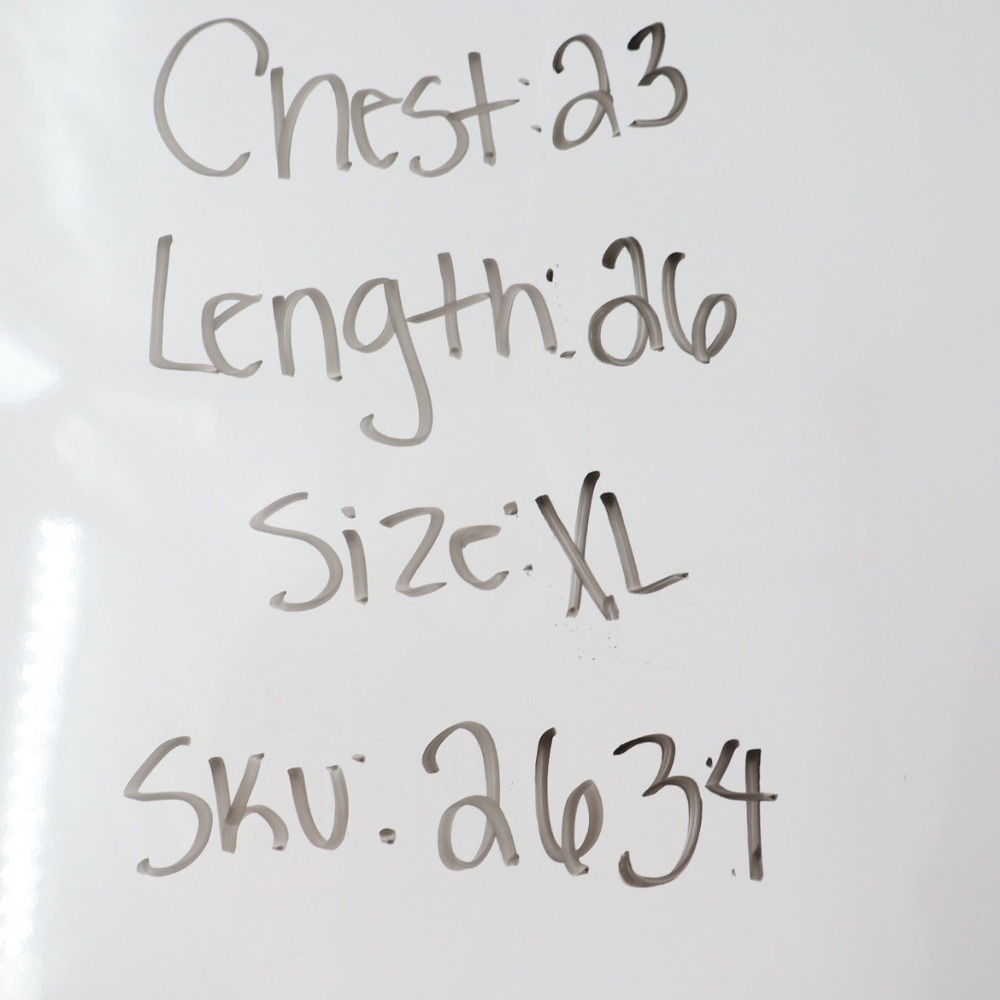 Chest: 23
Length: 26
Size: XL
SKU: 2634